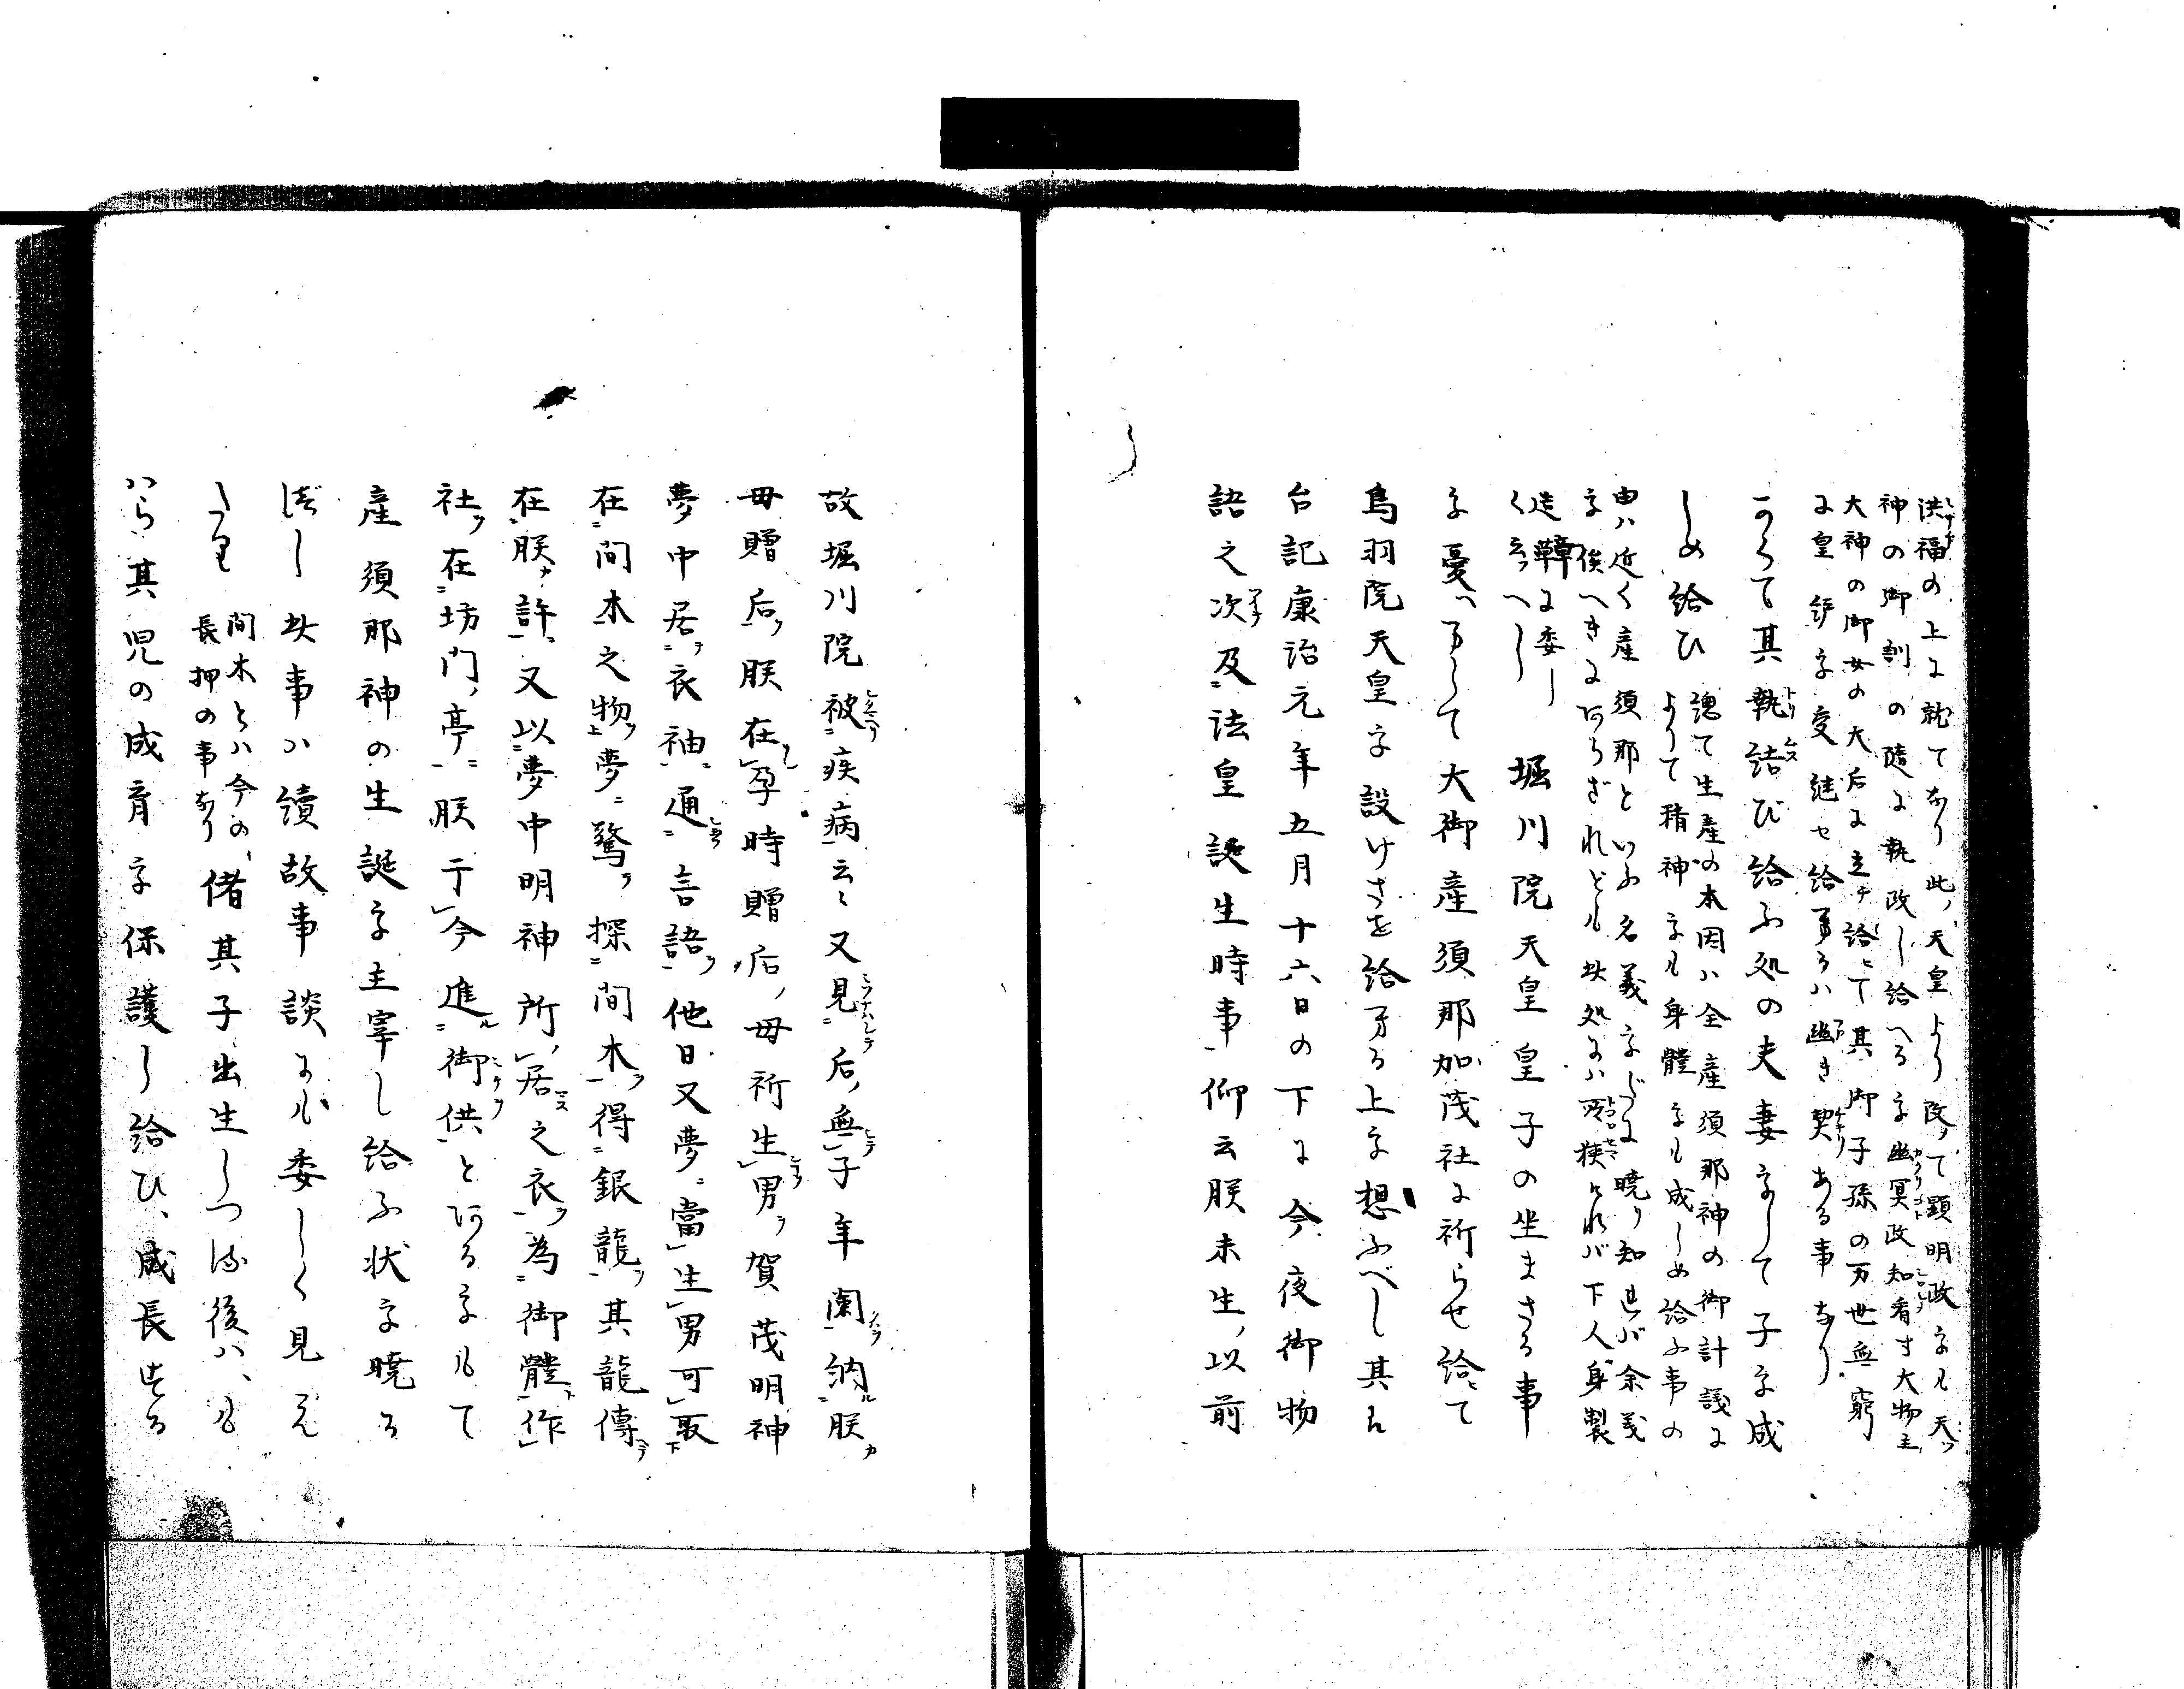 洪福の上に就てなり此ノ天皇より改て顕明政をも天ツ
神の御訓の随に執政し給へるを幽冥政知看す大物主
大神の御女の大后に立チ給ヒて其御子孫の万世無窮
に皇統を受継セ給ふるハ幽き契ある事なり
かくて其執結び給ふ処の夫妻をして子を成
しめ給ひ 總て生産の本因ハ全産須那神の御計議に
よりて精神をも身體をも成しめ給ふ事の
由ハ近く産須那といふ名義をバに曉り知ればバ余義
を俟へきにあらざれども此処にハ所狭けれバ下人身製
造鞴に委し
く云べし 堀川院天皇皇子の坐まさる事
を憂へまして大御産須那加茂社に祈らせ給ヒて
鳥羽院天皇を設けさせ給ふる上を想ふべし其ハ
台記康治元年五月十六日の下に今夜御物
語之次及法皇誕生時事仰云朕未生以前
故堀川院被疾病云々又見后無子年闌納朕
母贈后朕在孕時贈后母祈生男賀茂明神
夢中居衣袖通言語他日又夢當生男可取
在間木之物夢驚探間木得銀龍其龍傳
在朕許又以夢中明神所居之衣為御體作
社在坊門亭朕于今進御供とあるをもて
産須那神の生誕を主宰し給ふ状を曉る
べし此事ハ續故事談にも委しく見え
たり 間木とハ今の
長押の事なり 偖其子出生しつる後ハ、も
はら其児の成育を保護し給ひ、成長する